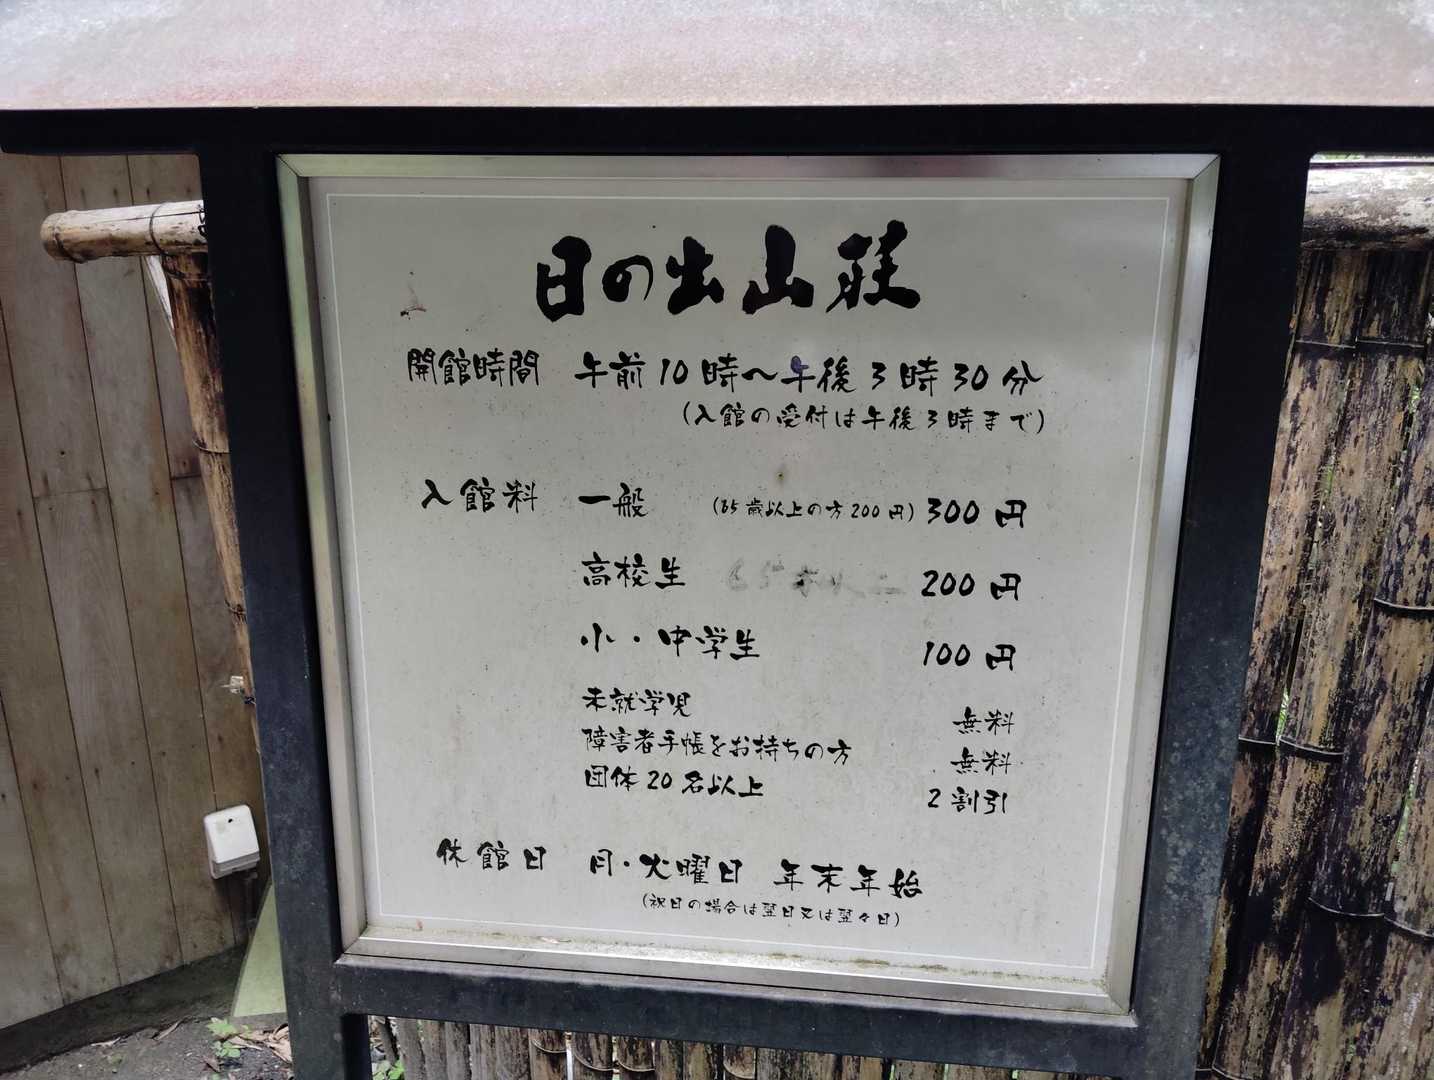 日の出山荘
開館時間 午前10時～午後3時30分
(入館の受付は午後3時まで)
入館料 一般 (65歳以上の方200円) 300円
高校生 200円
小・中学生 100円
未就学児 無料
障害者手帳をお持ちの方 無料
団体20名以上 2割引
休館日 月・火曜日 年末年始
(祝日の場合は翌日又は翌々日)